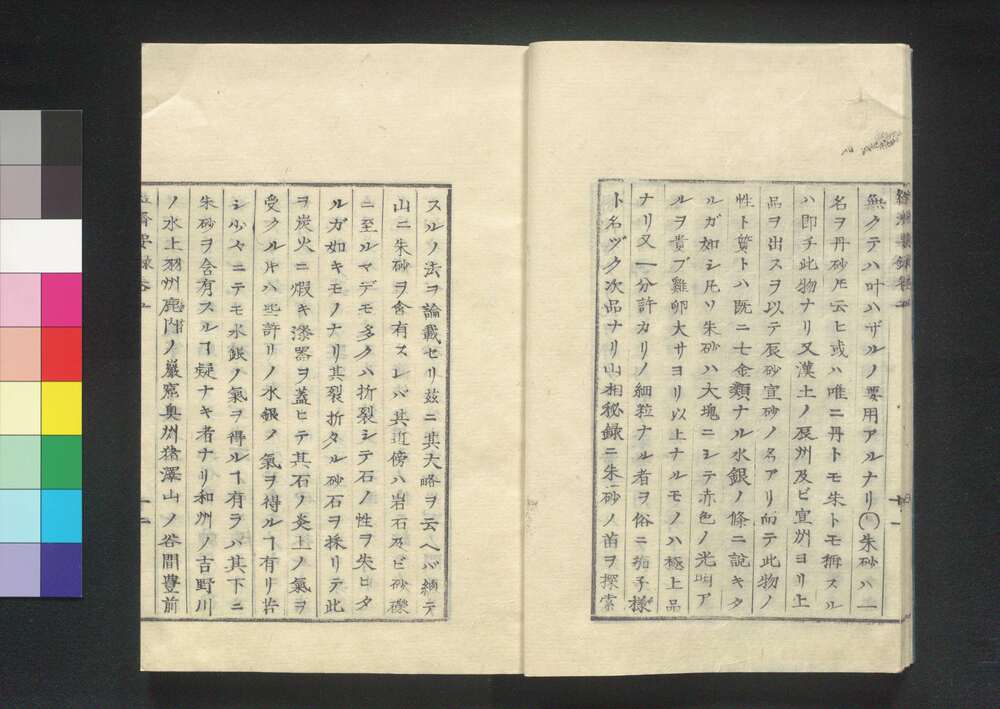 無クテハ叶ハザルノ要用アルナリ〇朱砂ハ一
名ヲ丹砂𪜈云ヒ或ハ唯ニ丹トモ朱トモ稱スル
ハ即チ此物ナリ又漢土ノ辰州及ビ宜州ヨリ上
品ヲ出スヲ以テ辰砂宜砂ノ名アリ而テ此物ノ
性ト質トハ既ニ七金類ナル水銀ノ條ニ說キタ
ルガ如シ凡ソ朱砂ハ大塊ニシテ赤色ノ光明ア
ルヲ貴ブ雞卵大サヨリ以上ナルモノハ極上品
ナリ又一分許カリノ細粒ナル者ヲ俗ニ茄子様
ト名ヅク次品ナリ山相秘録ニ朱砂ノ苗ヲ探索
スルノ法ヲ論載セリ茲ニ其大略ヲ云ヘバ縝テ
山ニ朱砂ヲ含有スレバ其近傍ハ岩石及ビ砂礫
ニ至ルマデモ多クハ折裂シテ石ノ性ヲ失ヒタ
ルガ如キモノナリ其裂折タル砂石ヲ採リテ此
ヲ炭火ニ煆キ漆器ヲ蓋ヒテ其石ノ炎上ノ氣ヲ
受クル片ハ些許リノ水銀ノ氣ヲ得ルヿ有リ若
シ少々ニテモ水銀ノ氣ヲ得ルヿ有ラバ其下ニ
朱砂ヲ含有スルヿ疑ナキ者ナリ和州ノ吉野川
ノ水上羽州鹿角ノ巖窟奥州猪澤山ノ谷間豊前